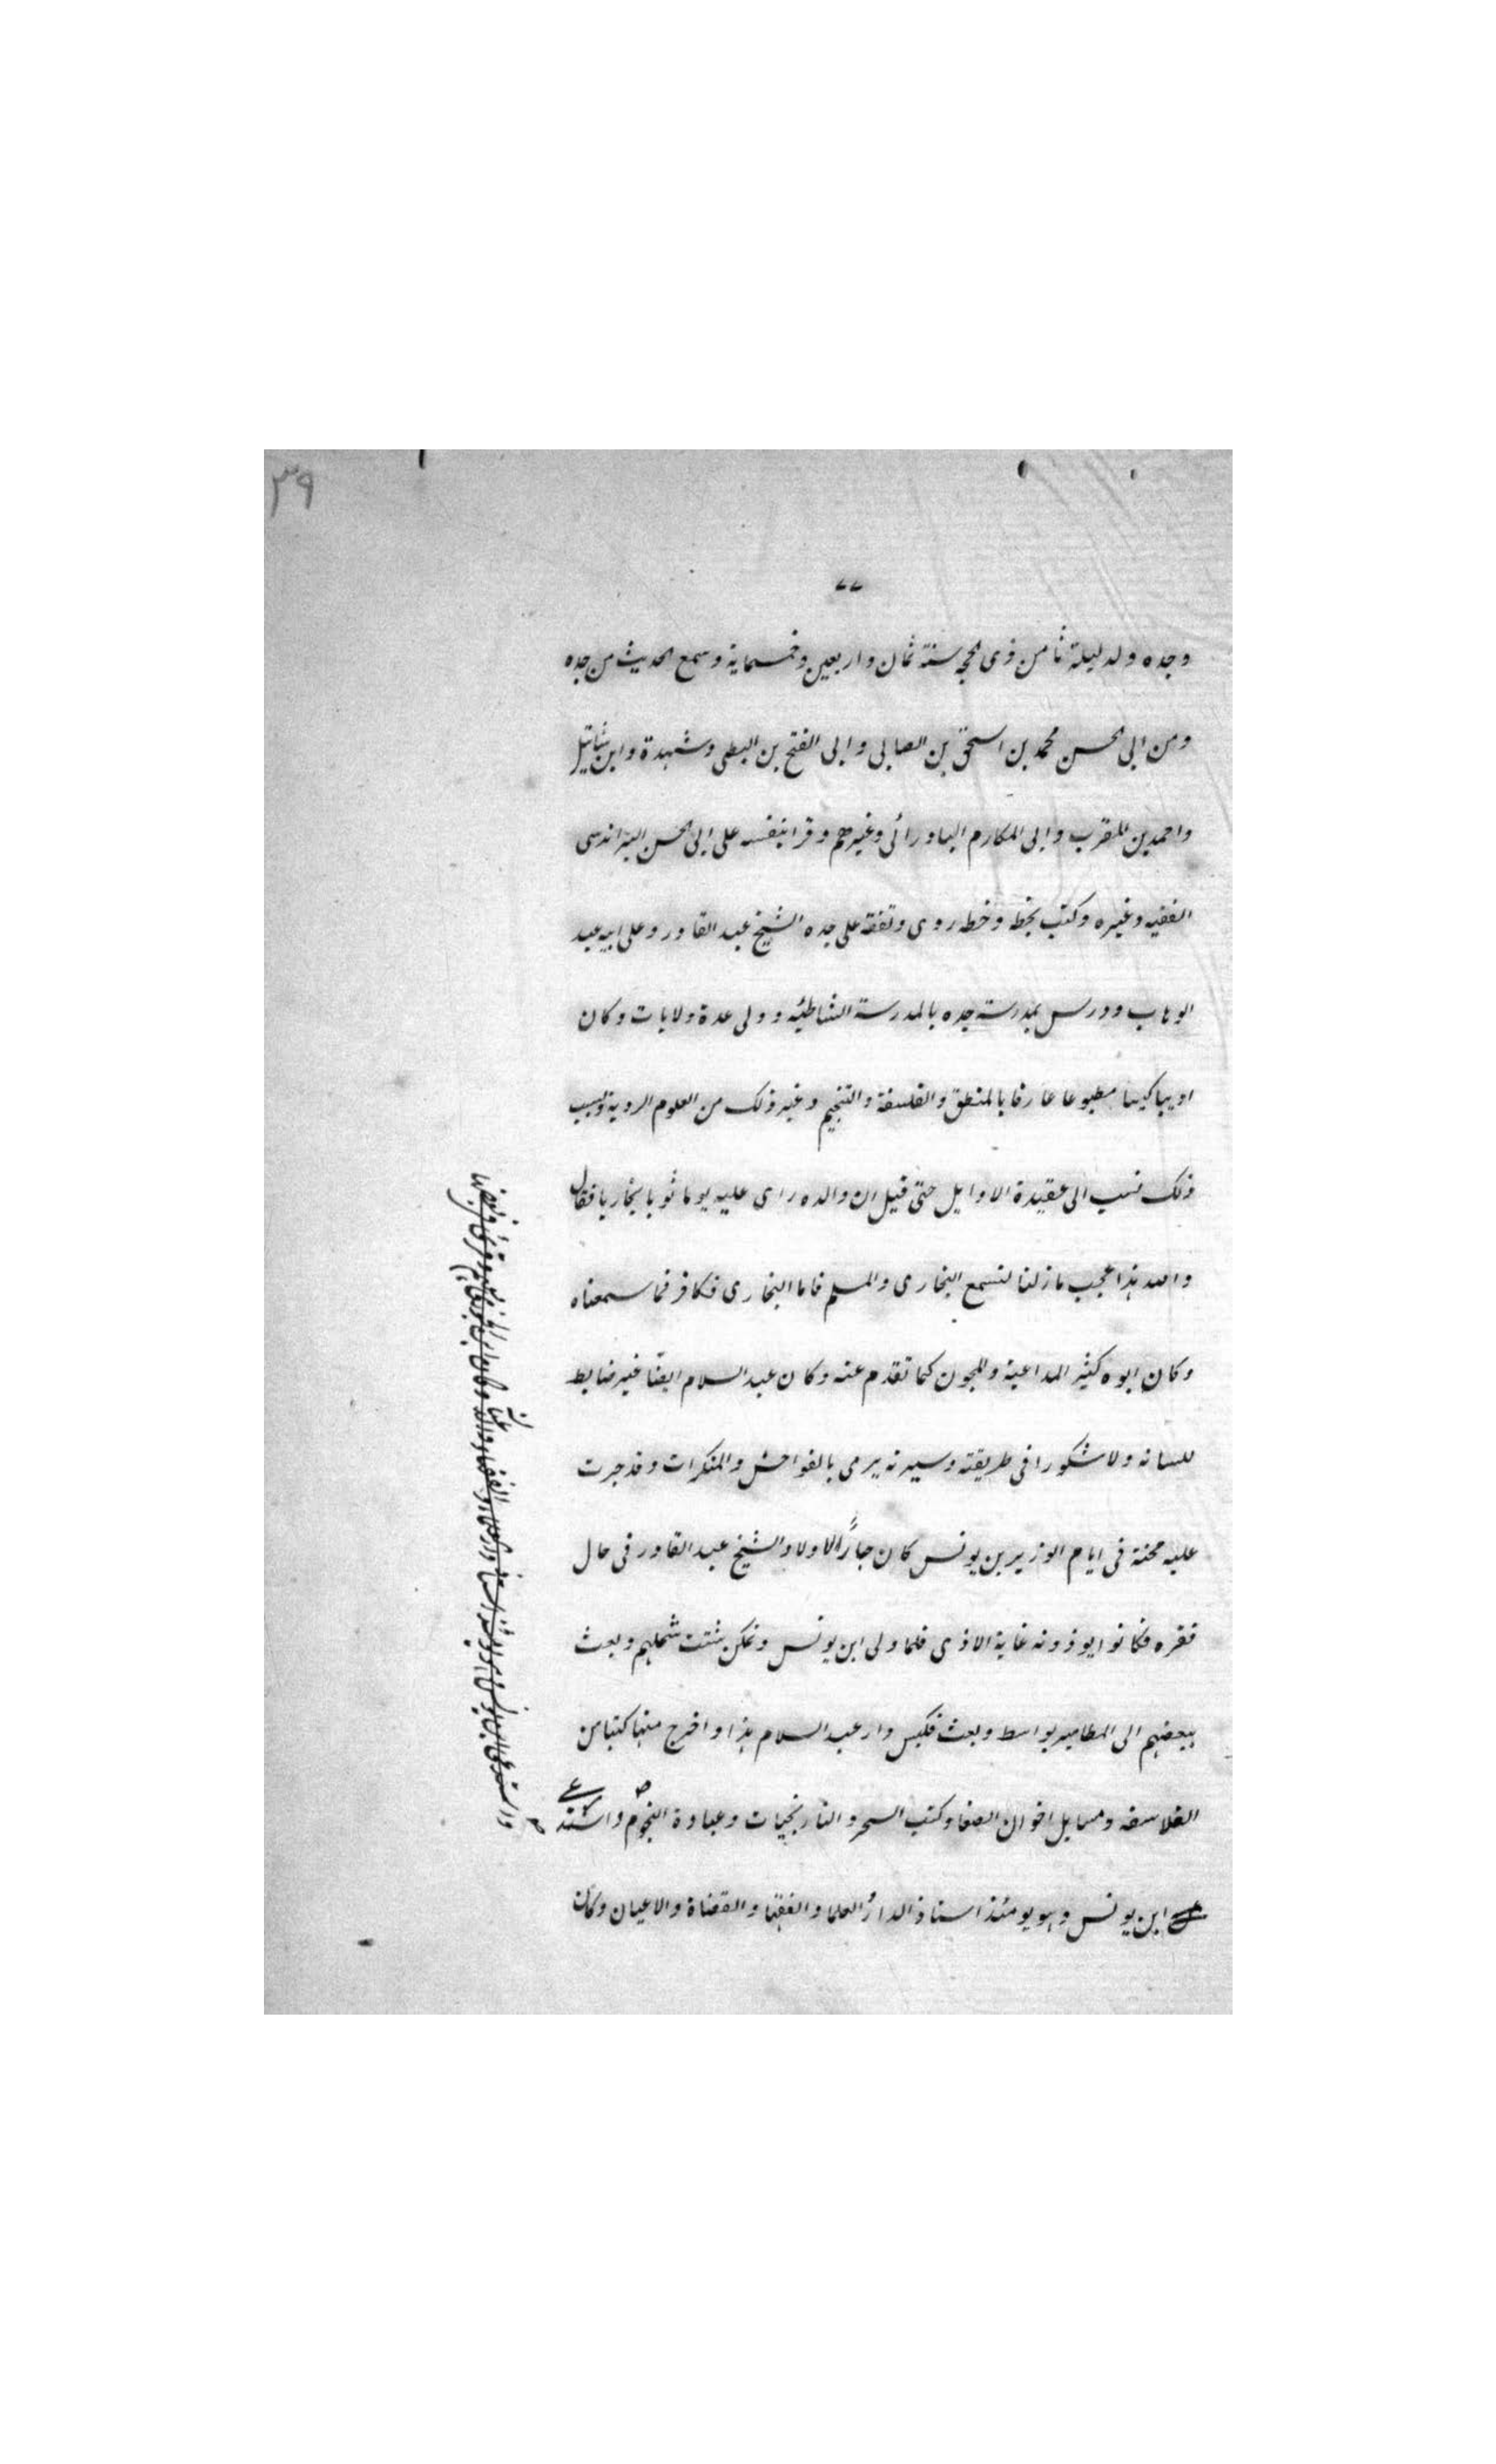 ٣٩
٧٧
وجده ولد ليلة ثامن ذى الحجه سنة ثمان واربعين وخمسماية وسمع الحديث من جده
ومن ابى الحسن محمد بن اسحق بن الصابى وابى الفتح بن البطى وشهدة وابن شاتيل
واحمد بن المقرب وابى المكارم البادرائى وغيرهم وقرا بنفسه على ابى الحسن البراندسى
الفقيه وغيره وكتب بخطه وخطه روى وتفقه على جده الشيخ عبد القادر وعلى ابيه عبد
الوهاب ودرس بمدرسة جده بالمدرسة الشاطئيه وولى عدة ولايات وكان
اديبا كيسا مطبوعا عارفا بالمنطق والفلسفة والتنجيم وغير ذلك من العلوم الردية وبسبب
ذلك نسب الى عقيدة الاوايل حتى قيل ان والده راى عليه يوما ثوبا بخاريا فقال
والله هذا عجب مازلنا نسمع البخارى والمسلم فاما البخارى فكافر فما سمعناه
وكان ابوه كثير المداعبة والمجون كما تقدم عنه وكان عبد السلام ايضا غير ضابط
للسانه ولا مشكورا فى طريقته وسيرته يرمى بالفواحش والمنكرات وقد جرت
عليه محنة فى ايام الوزير بن يونس كان جارًا لاولاد الشيخ عبد القادر فى حال
فقره فكانوا يوذونه غاية الاذى فلما ولى ابن يونس وتمكن شتت شملهم وبعث
ببعضهم الى المطامير بواسط وبعث فكبس دار عبد السلام هذا واخرج منها كتبا من
الفلاسفه ومسايل اخوان الصفا وكتب السحر والنارنجيات وعبادة النجوم واستد
على
ابن يونس وهو يومئذ استاذ الدار العلما والفقها والقضاة والاعيان وكان